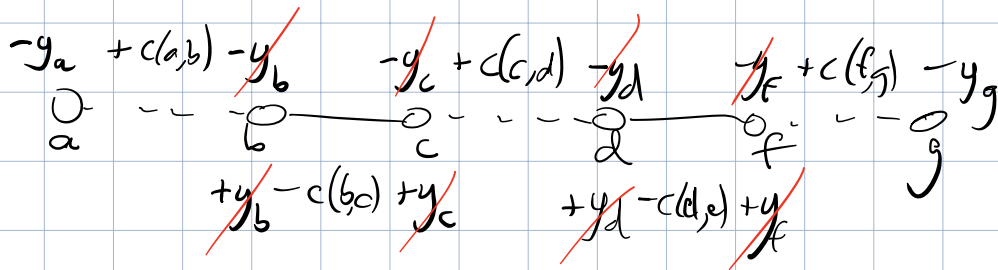 -y_a +c(a,b) -y_b -y_c +c(c,d) -y_d -y_f +c(f,g) -y_g
a b c d f g
+y_b -c(b,c) +y_c +y_d -c(d,e) +y_f